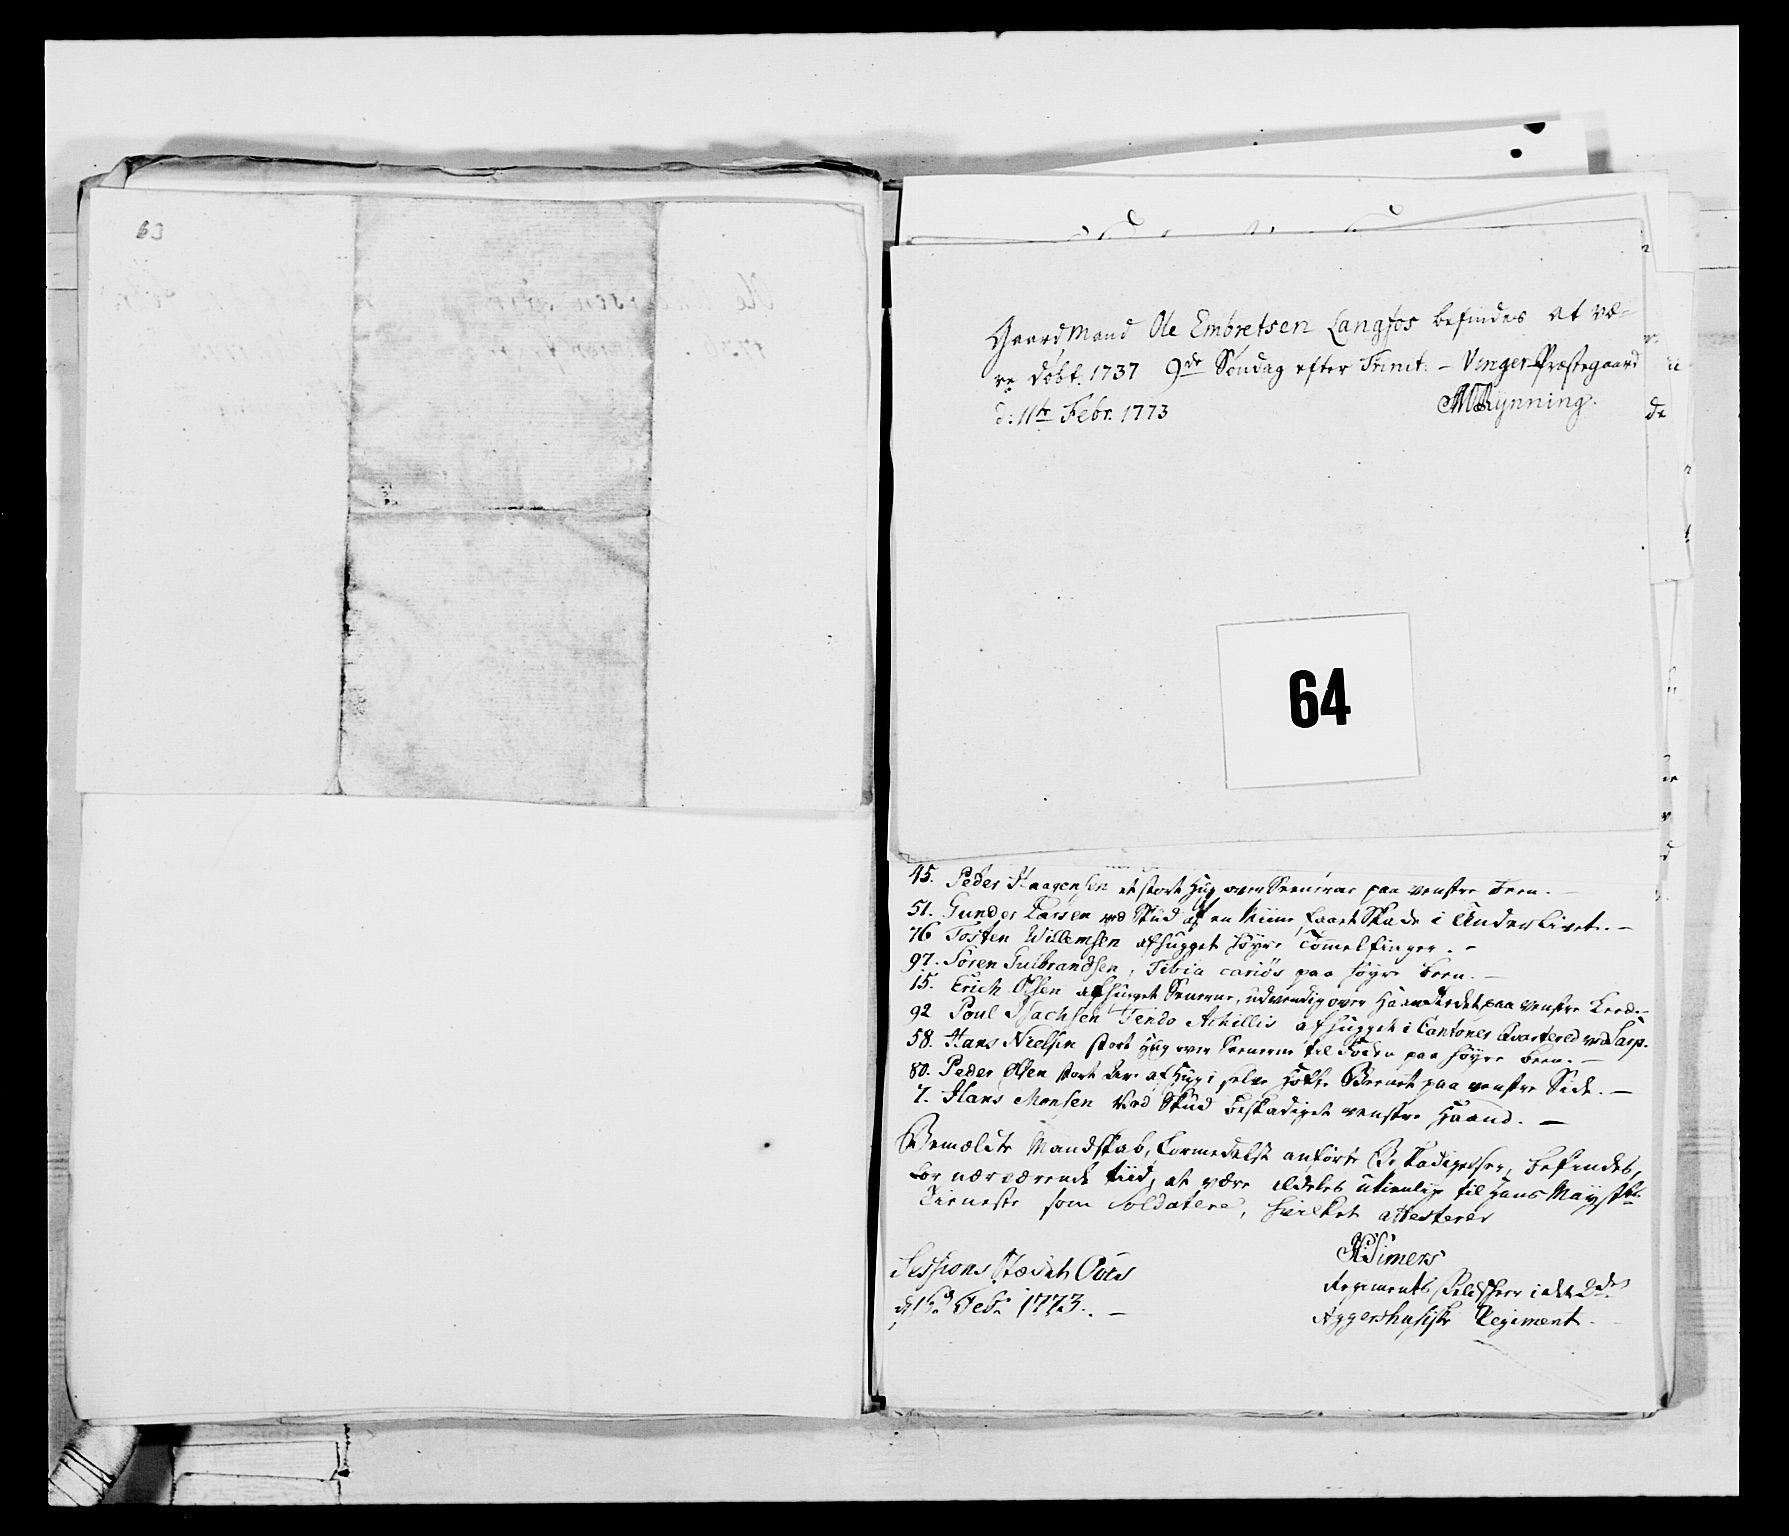 63
Gaard Mand Ole Embretsen Langfos befindes at væ-
re døbt. 1737 9de Søndag efter Trinit: - Vinger Præstegaard
d: 11te Febr. 1773 MRynning.
64
45. Peder Haagensen et stort Hug over Senerne paa venstre Been. -
51. Gunder Larsen ved Skud af en Miine, faaet Skade i Underlivet. -
76 Tosten Willemsen afhugget høyre Tommelfinger. -
97. Søren Gulbrandsen, Tibia cariøs paa høyre Been. -
15. Erich Olsen afhugget Senerne, udvendig over Haandledet paa venstre
92 Poul Isachsen Tendo Achillis afhugget i Cantoner Qvartered ved Sarp.
58. Hans Nielsen stort Hug over Senerne til Foden paa høyre Been. -
80. Peder Olsen stort af Hug i selve Hofte Beenet paa venstre Side. -
7. Hans Monsen Ved Skud beskadiget venstre Haand. -
Bemældte Mandskab, formedelst anførte Beskadigelser, befindes,
for nærværende tiid, at være aldeles utienlig til Hans Mayestts
Tieneste som Soldatere, hvilket attesterer
Sessions Stædet Oves HSimers
d 15de Febr 1773. - Regiments Feldskier i det 2det
Aggershusiske Regiment.